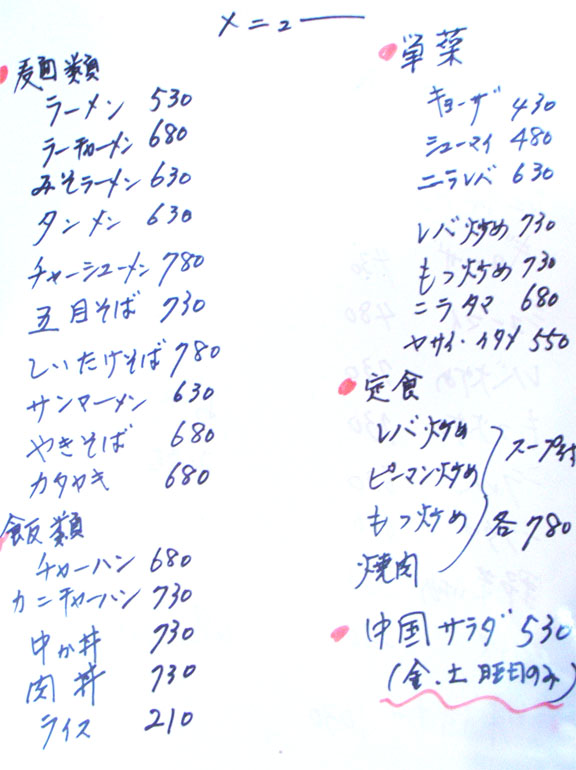 メニュー
麺類
ラーメン 530
ラーチャーメン 680
みそラーメン 630
タンメン 630
チャーシューメン 780
五目そば 730
しいたけそば 780
サンマーメン 630
やきそば 680
カタヤキ 680
飯類
チャーハン 680
カニチャーハン 730
中か丼 730
肉丼 730
ライス 210
単菜
ギョーザ 430
シューマイ 480
ニラレバ 630
レバ炒め 730
もつ炒め 730
ニラタマ 680
ヤサイ・イタメ 550
定食
レバ炒め
ピーマン炒め
もつ炒め
焼肉
スープ付
各780
中国サラダ 530
(金、土曜日のみ)